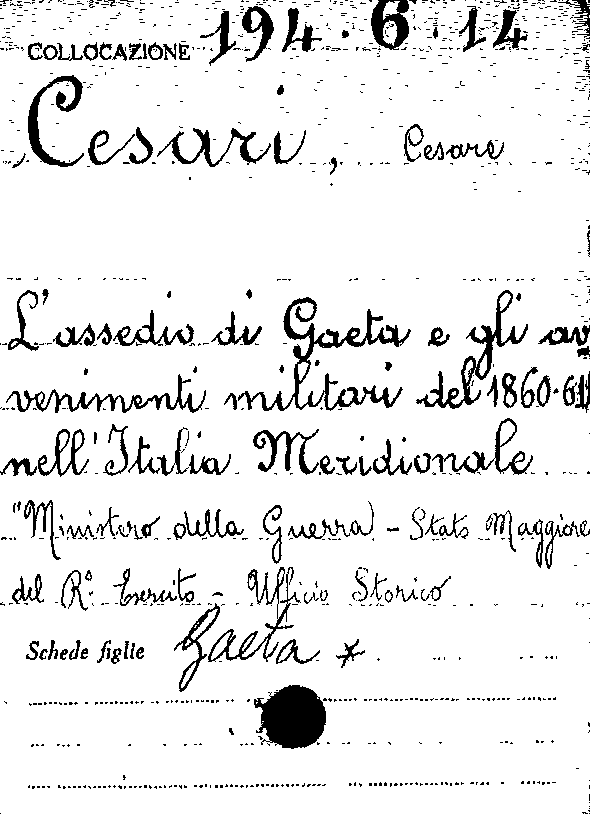 COLLOCAZIONE 194·6·14
Cesari, Cesare
L'assedio di Gaeta e gli av
venimenti militari del 1860-61
nell'Italia Meridionale
"Ministero della Guerra) - Stato Maggiore
del R.º Esercito - Ufficio Storico
Schede figlie Gaeta *